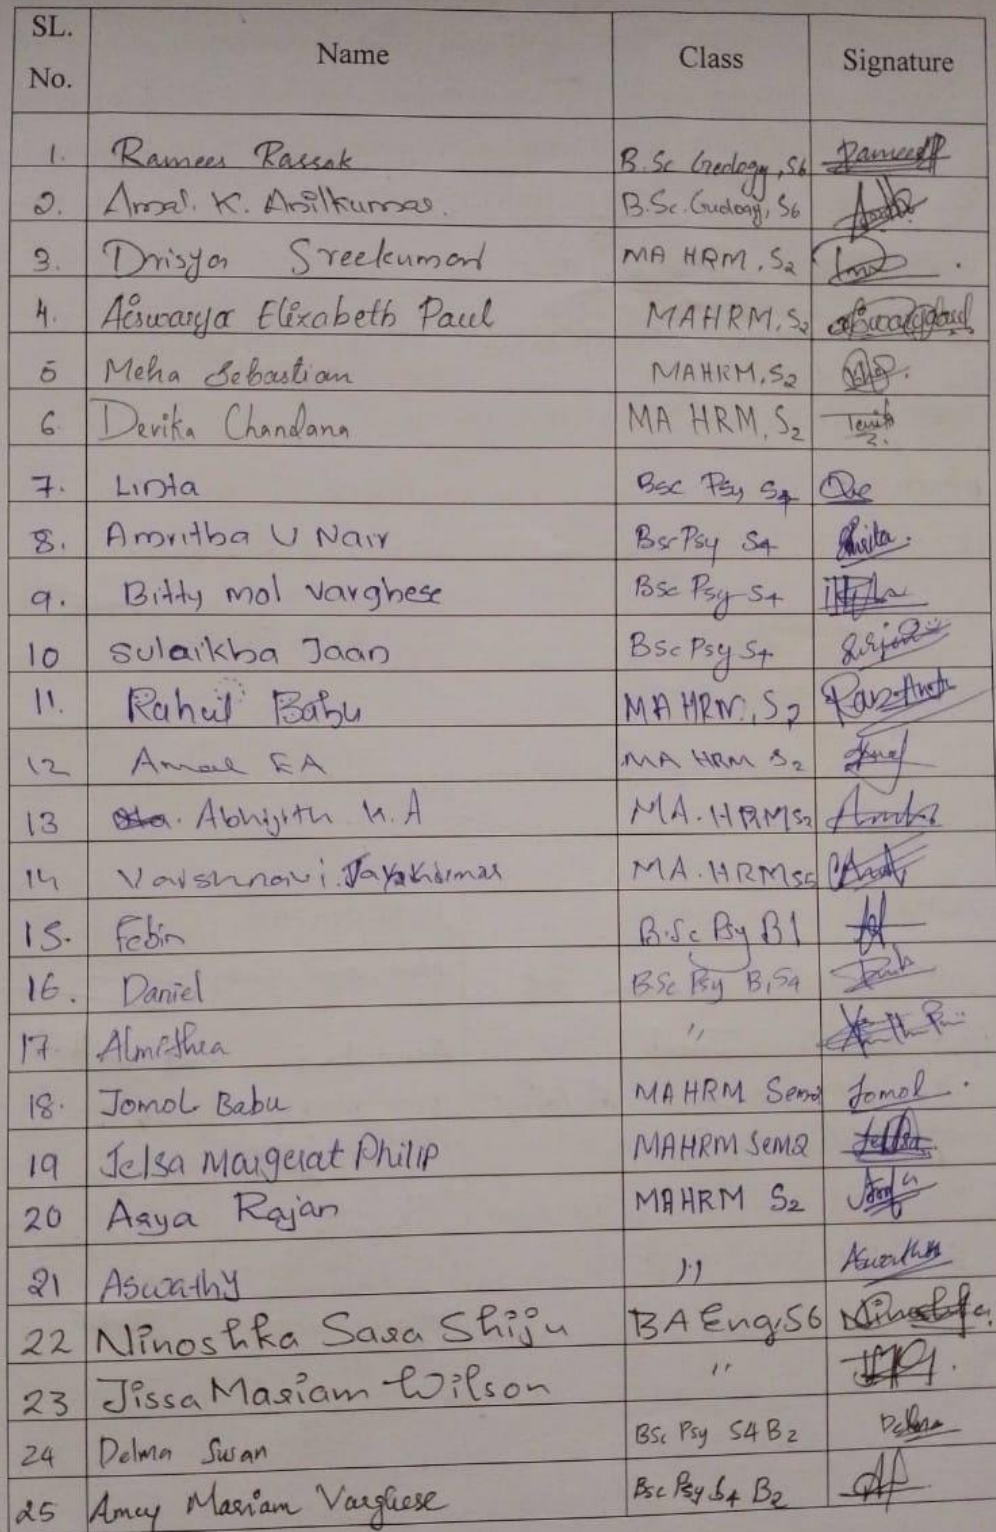 SL. No. Name Class Signature
1. Ramees Rassak B.Sc Geology, S6
2. Amal. K. Anilkumar. B.Sc. Geology, S6
3. Drisya Sreekumar MA HRM, S2
4. Aiswarya Elizabeth Paul MAHRM, S2
5 Meha Sebastian MAHRM, S2
6. Devika Chandana MA HRM, S2
7. Linta Bsc Psy S4
8. Amritha U Nair Bsc Psy S4
9. Bitty mol varghese Bsc Psy S4
10 Sulaikha Jaan Bsc Psy S4
11. Rahul Babu MA HRM, S2
12 Amal EA MA HRM S2
13 Abhijith K.A MA. HRM S2
14 Vaishnavi. Jayakumar MA. HRM
15. Febin B.Sc Psy B1
16. Daniel BSc Psy B1 S4
17. Almithea "
18. Jomol Babu MAHRM Sem2 Jomol
19 Jelsa Margerat Philip MAHRM Sem2 Jelsa
20 Arya Rajan MAHRM S2
21 Aswathy " Aswathy
22 Ninoshka Sara Shiju BA Eng, S6 Ninoshka
23 Jissa Mariam Wilson "
24 Delma Susan BSc Psy S4 B2 Delma
25 Amey Mariam Varghese Bsc Psy S4 B2